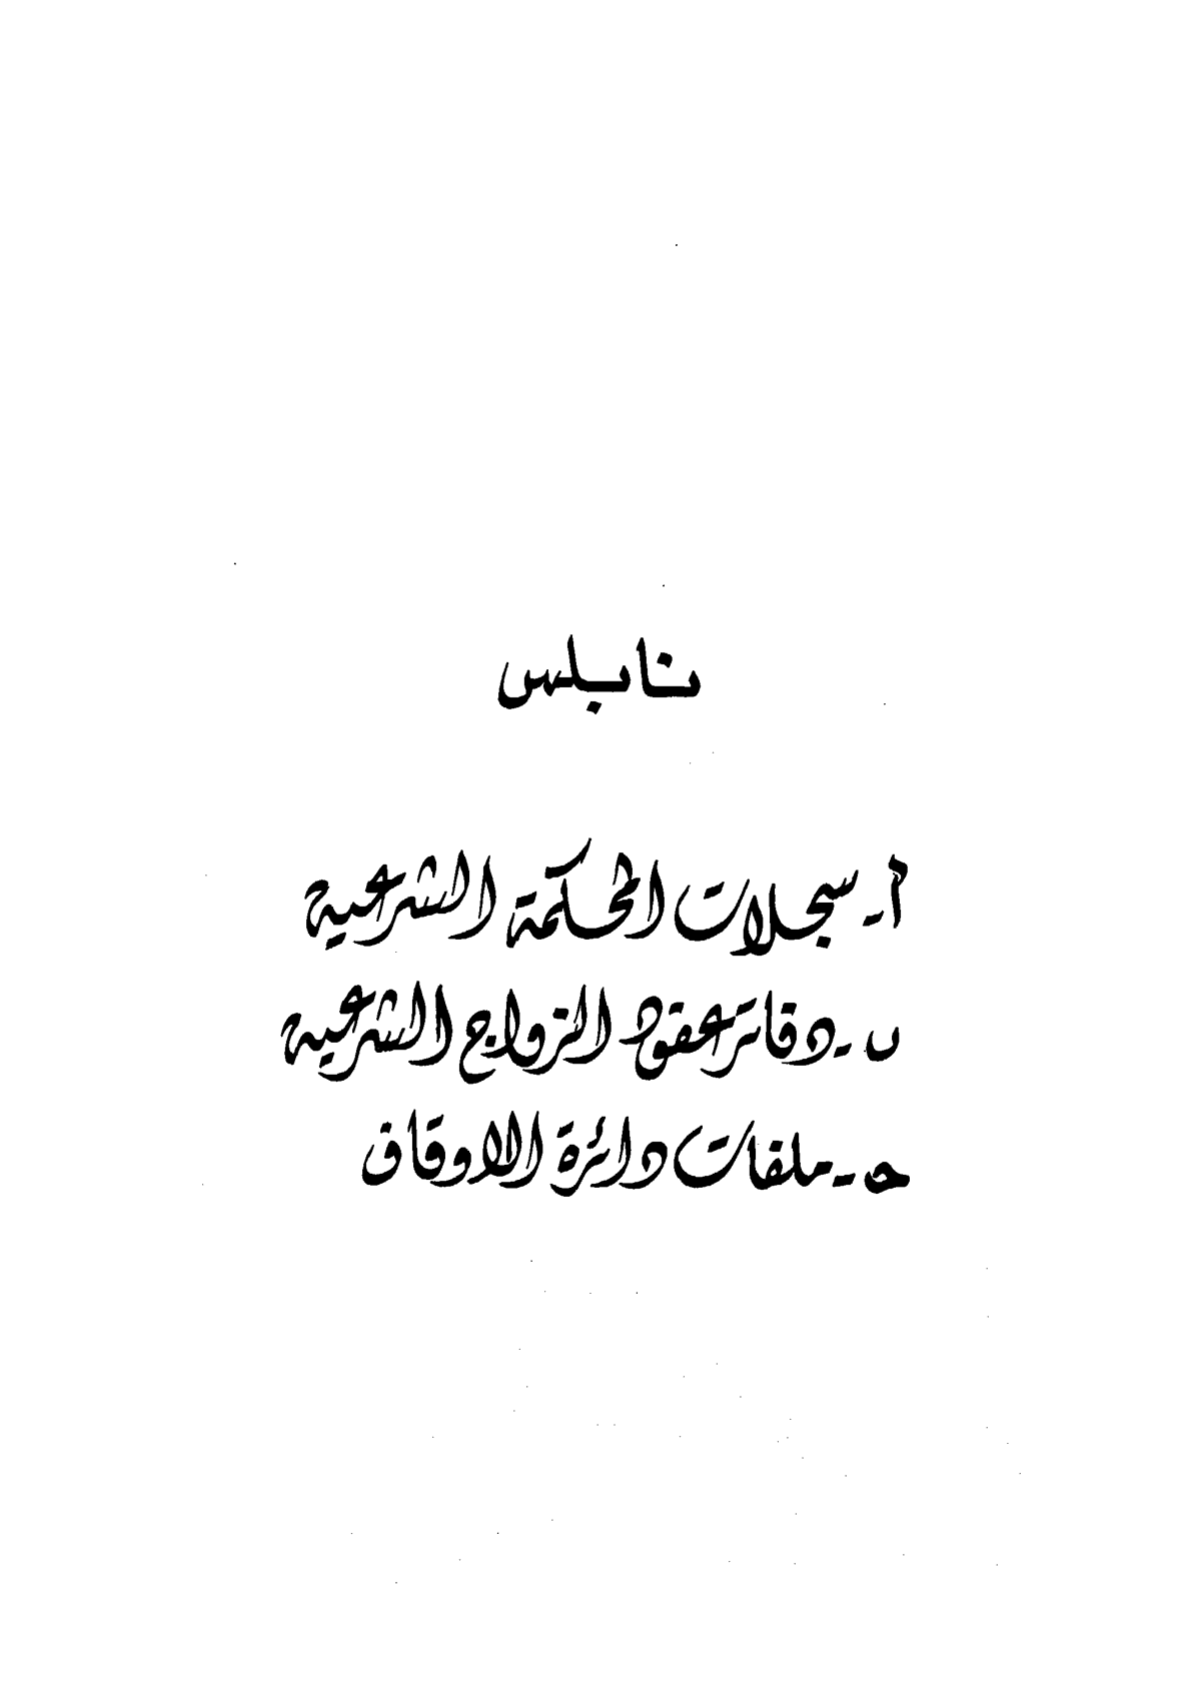 نابلس
أ - سجلات المحكمة الشرعية
ب - دفاتر عقود الزواج الشرعية
ح - ملفات دائرة الاوقاف